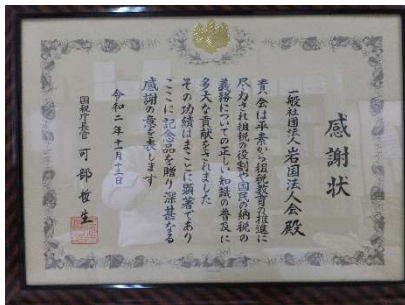 感謝状
一般社団法人岩国法人会殿
貴会は平素から租税教育の推進に
尽力され租税の役割や国民の納税の
義務についての正しい知識の普及に
多大な貢献をされました
その功績はまことに顕著であり
ここに記念品を贈り深甚なる
感謝の意を表します
令和二年十一月十三日
国税庁長官 可部哲生